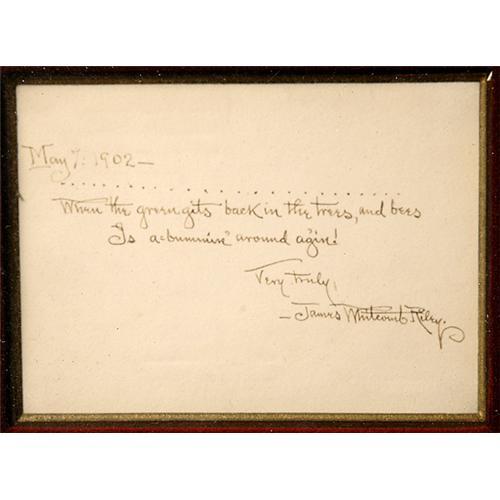 May 7. 1902—
. . . . . . . . . . . . . . . . . . . . . . . .
When the green gits back in the trees, and bees
Is a-bummin' around ag'in!
Very truly,
—James Whitcomb Riley.